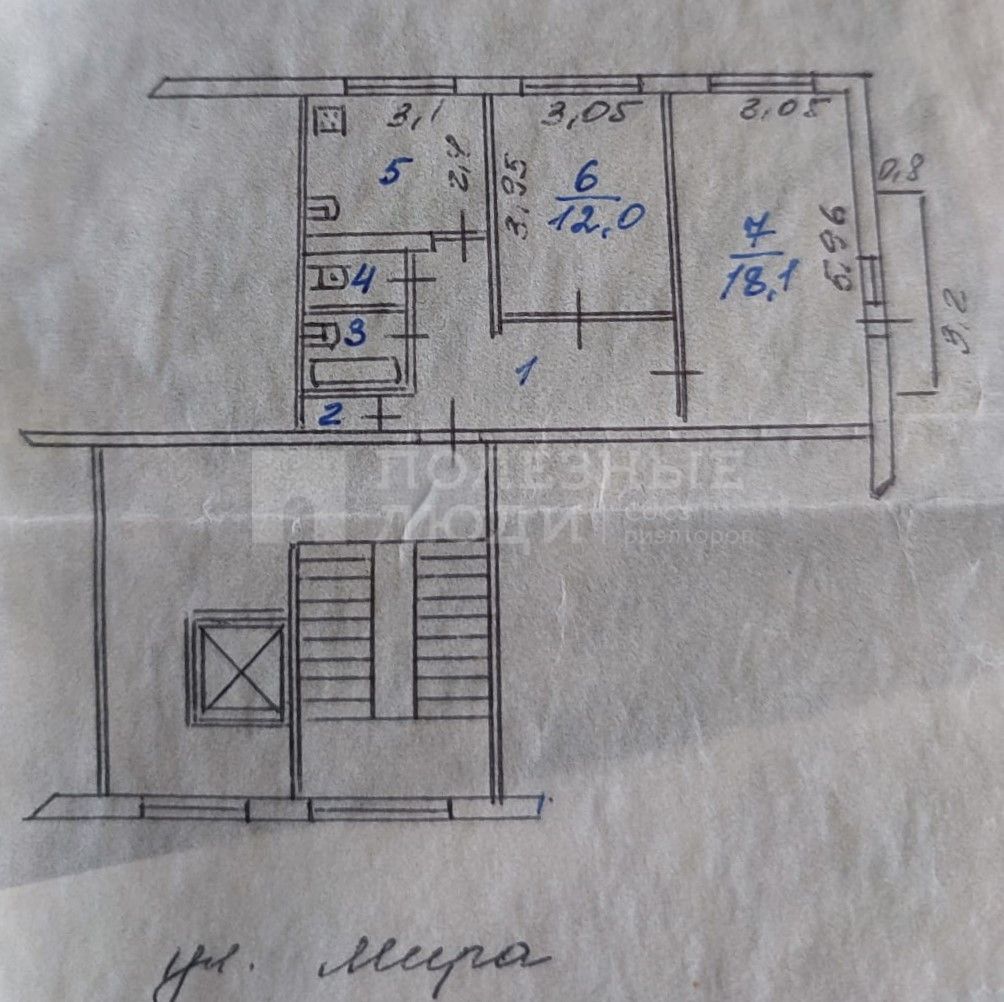 3,1
3,05
3,05
5
2,4
3,95
6
12,0
7
18,1
5,96
0,8
3,2
4
3
1
2
ПОЛЕЗНЫЕ
ЛЮДИ
риэлторов
ул. Мира